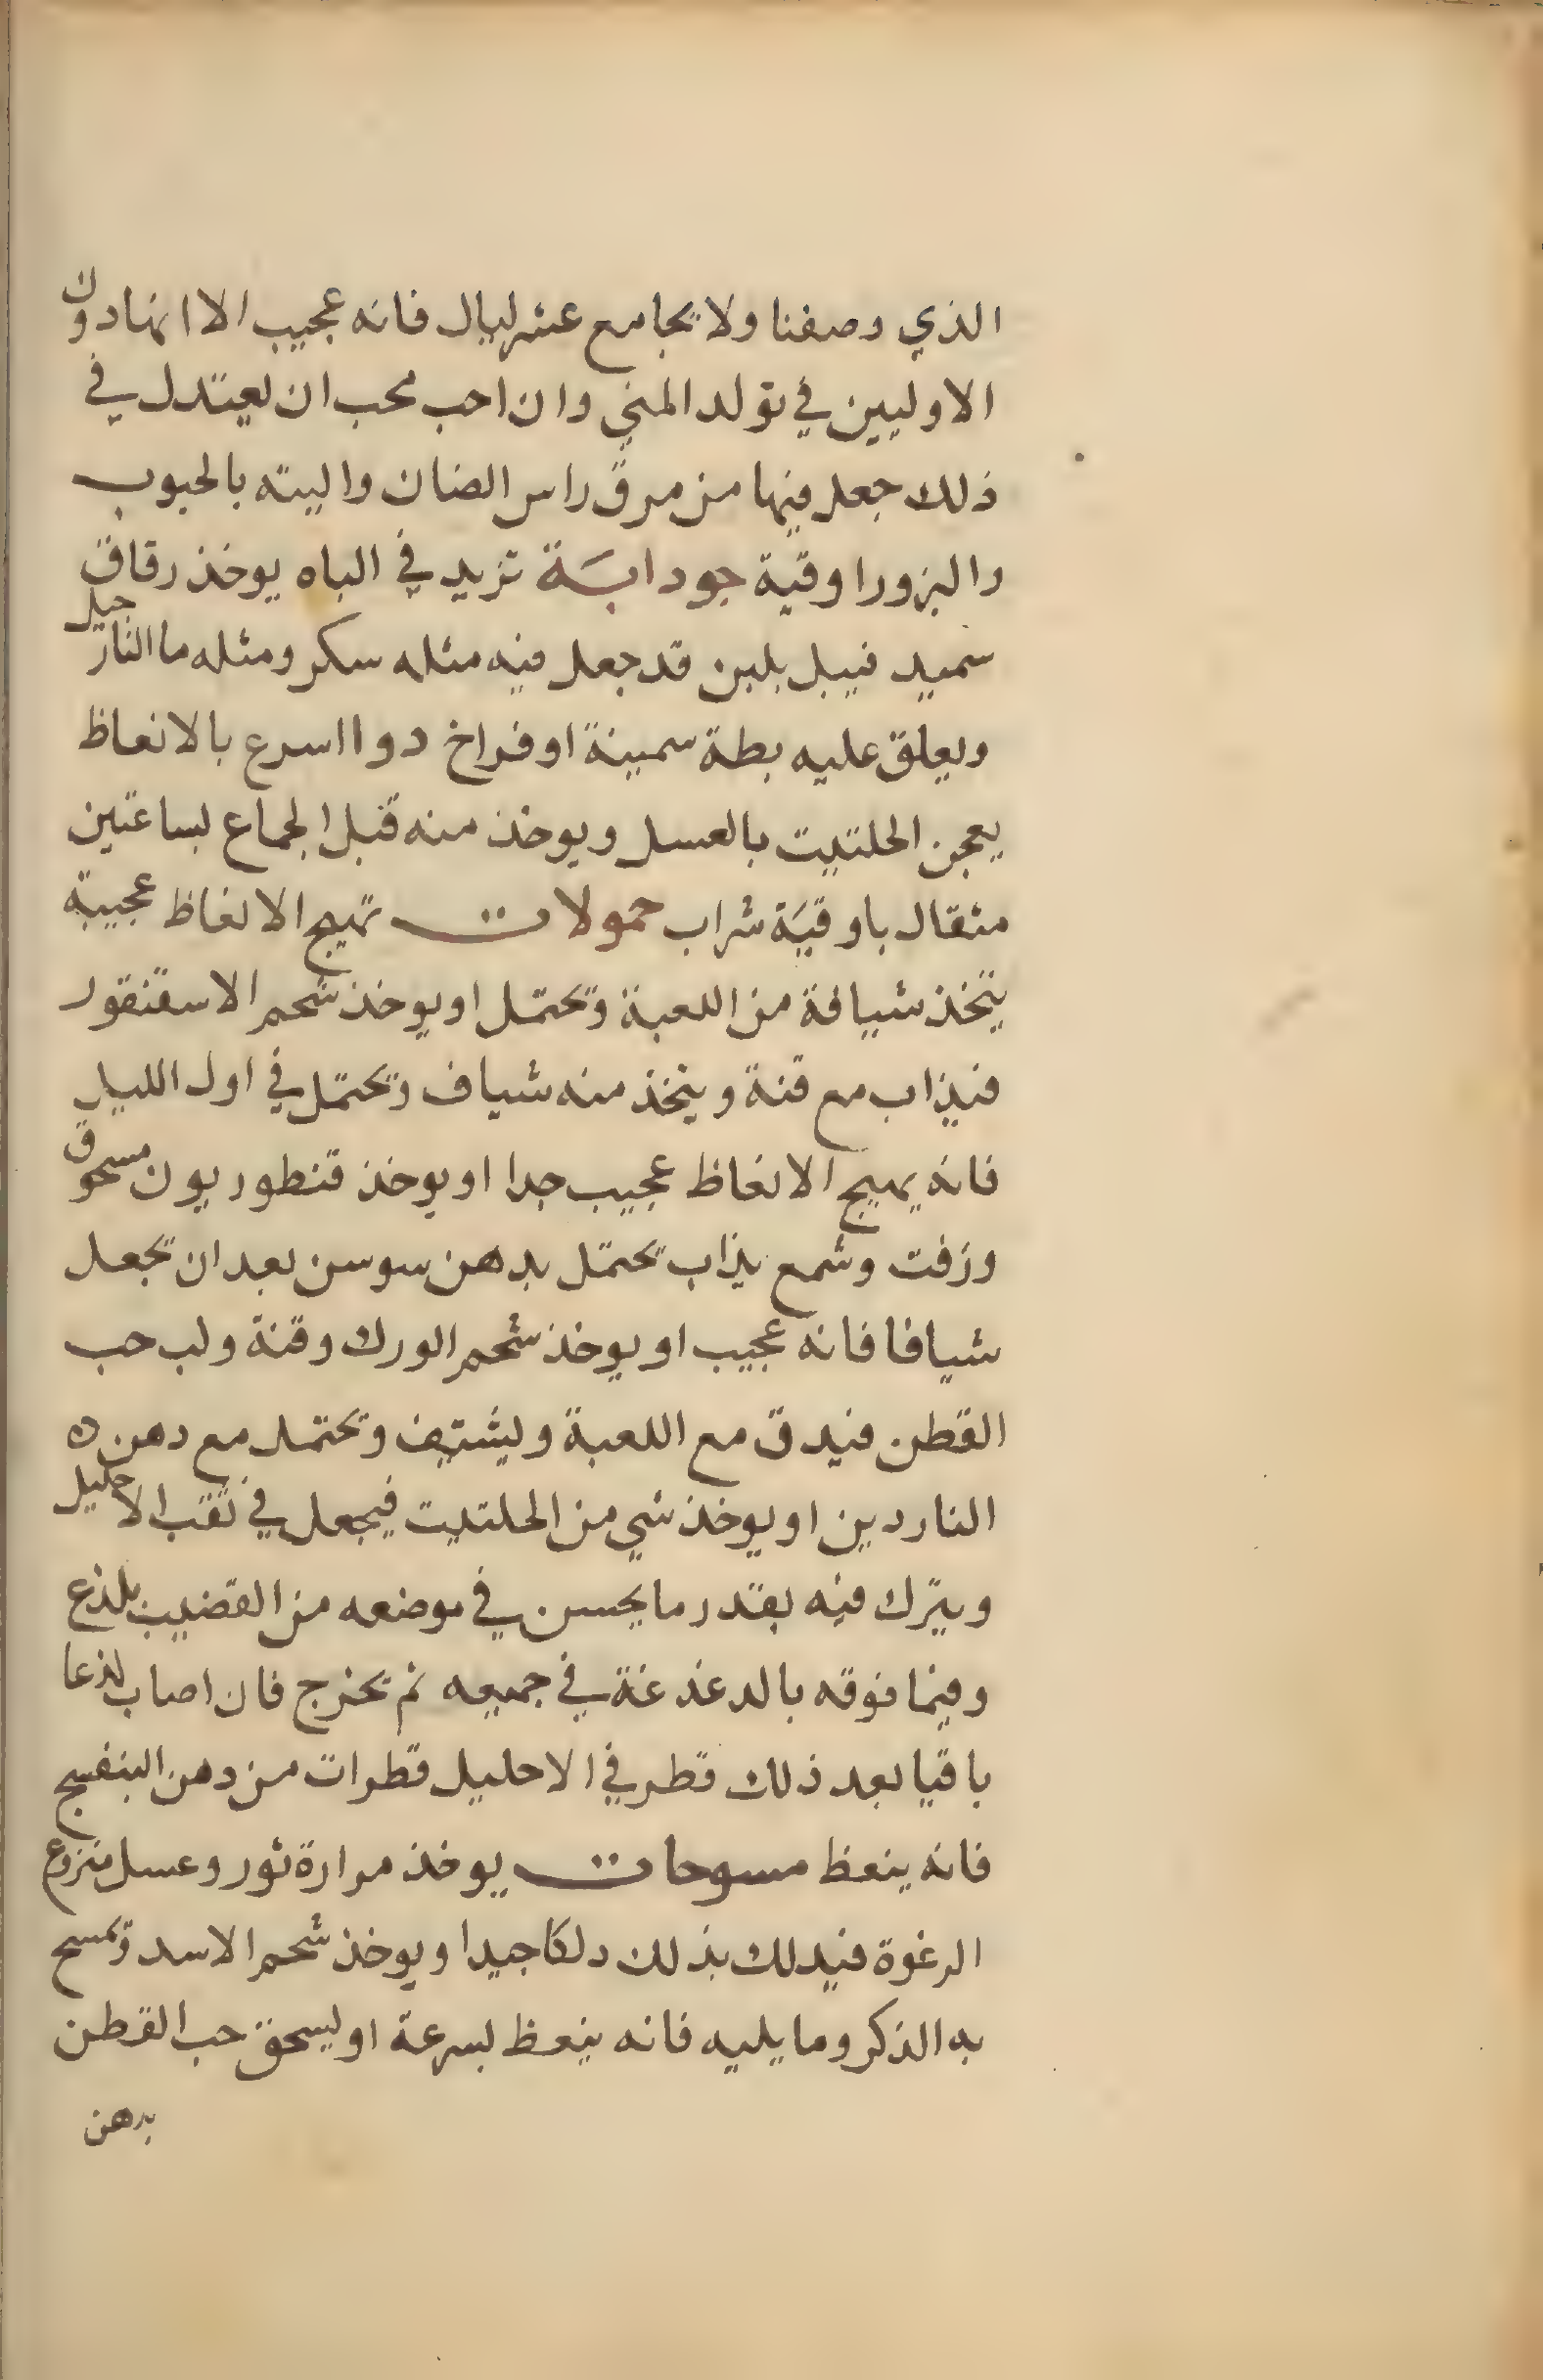 الذي وصفنا ولا يجامع عشر ليال فانه عجيب الا انها دون
الاوليين في تولد المني وان احب محب ان يعتدل في
ذلك جعل فيها من مرق راس الضان واليته بالحبوب
والبزور اوقية جودابة تزيد في الباه يوخذ رقاق
سميد فيبل بلبن قد جعل فيه مثله سكر ومثله ما النارجيل
ويعلق عليه بطة سمينة او فراخ دوا اسرع بالانعاظ
يعجن الحلتيت بالعسل ويوخذ منه قبل الجماع بساعتين
مثقال باوقية شراب حمولات تهيج الانعاظ عجيبة
يتخذ شيافة من اللعبة وتحتمل او يوخذ شحم الاسقنقور
فيذاب مع قنة ويتخذ منه شياف وتحتمل في اول الليل
فانه يهيج الانعاظ عجيب جدا او يوخذ قنطوريون مسحوق
وزفت وشمع يذاب تحتمل بدهن سوسن بعد ان تجعل
شيافا فانه عجيب او يوخذ شحم الورك وقنة ولب حب
القطن فيدق مع اللعبة ويشتيف وتحتمل مع دهن ه
الناردين او يوخذ شي من الحلتيت فيجعل في ثقب الاحليل
ويترك فيه بقدر ما يحسن في موضعه من القضيب بلذع
وفيما فوقه بالدغذغة في جميعه ثم يخرج فان اصاب لذعا
باقيا بعد ذلك قطر في الاحليل قطرات من دهن البنفسج
فانه ينعظ مسوحات يوخذ مرارة ثور وعسل منزوع
الرغوة فيدلك بذلك دلكا جيدا او يوخذ شحم الاسد وتمسح
به الذكر وما يليه فانه ينعظ بسرعة او يسحق حب القطن
بدهن